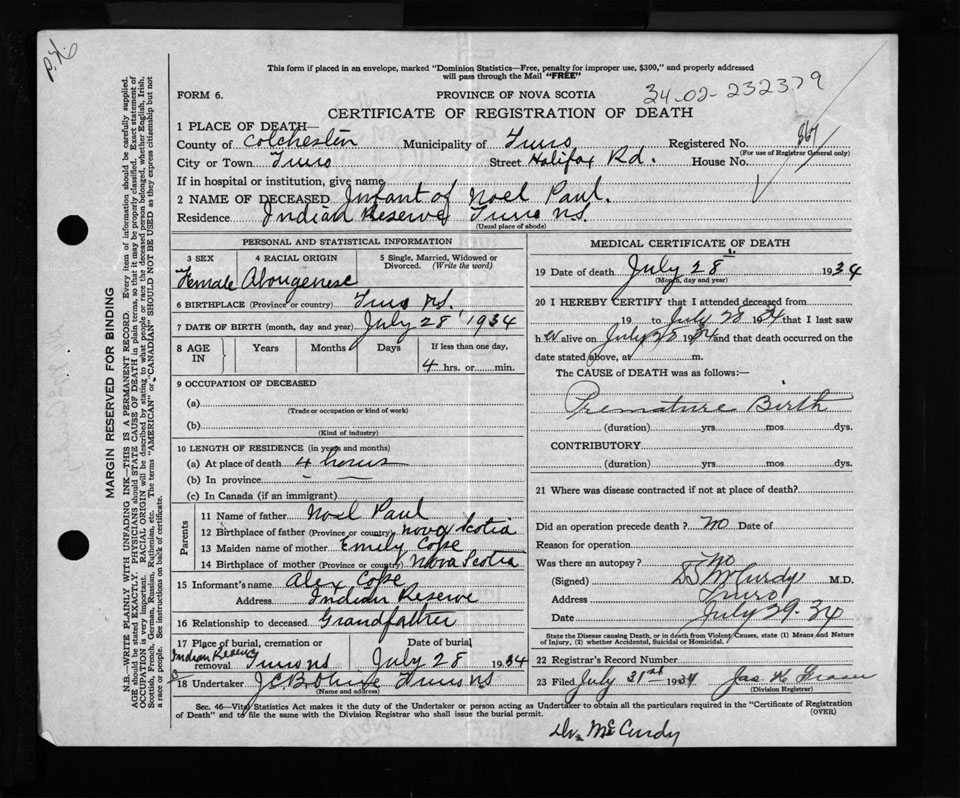 P.X.
This form if placed in an envelope, marked "Dominion Statistics—Free, penalty for improper use, $300," and properly addressed
will pass through the Mail "FREE"
FORM 6.
PROVINCE OF NOVA SCOTIA
34-02-232379
CERTIFICATE OF REGISTRATION OF DEATH
1 PLACE OF DEATH—
County of Colchester Municipality of Truro Registered No. 867
(For use of Registrar General only)
City or Town Truro Street Halifax Rd. House No.
If in hospital or institution, give name
2 NAME OF DECEASED Infant of Noel Paul.
Residence Indian Reserve Truro N.S.
(Usual place of abode)
PERSONAL AND STATISTICAL INFORMATION
3 SEX 4 RACIAL ORIGIN 5 Single, Married, Widowed or
Divorced. (Write the word)
Female Abougenese
6 BIRTHPLACE (Province or country) Truro N.S.
7 DATE OF BIRTH (month, day and year) July 28 1934
8 AGE IN Years Months Days If less than one day,
4 hrs. or min.
9 OCCUPATION OF DECEASED
(a)
(Trade or occupation or kind of work)
(b)
(Kind of industry)
10 LENGTH OF RESIDENCE (in years and months)
(a) At place of death 4 hours
(b) In province
(c) In Canada (if an immigrant)
Parents
11 Name of father Noel Paul
12 Birthplace of father (Province or country) Nova Scotia
13 Maiden name of mother Emily Cope
14 Birthplace of mother (Province or country) Nova Scotia
15 Informant's name Alex Cope
Address Indian Reserve
16 Relationship to deceased Grandfather
17 Place of burial, cremation or Date of burial
Indian Reserve
removal Truro ns July 28 1934
18 Undertaker J.C.B. Truro NS
(Name and address)
MEDICAL CERTIFICATE OF DEATH
19 Date of death July 28 1934
(Month, day and year)
20 I HEREBY CERTIFY that I attended deceased from
19 to July 28 1934 that I last saw
h er alive on July 28 1934 and that death occurred on the
date stated above, at m.
The CAUSE of DEATH was as follows:—
Premature Birth
(duration) yrs. mos. dys.
CONTRIBUTORY
(duration) yrs. mos. dys.
21 Where was disease contracted if not at place of death?
Did an operation precede death? No Date of
Reason for operation
Was there an autopsy? No
(Signed) McCurdy M.D.
Address Truro
Date July 29. 34
State the Disease causing Death, or in death from Violent Causes, state (1) Means and Nature
of Injury, (2) whether Accidental, Suicidal or Homicidal.
22 Registrar's Record Number
23 Filed July 31st 1934 Jas. Fraser
(Division Registrar)
Sec. 46—Vital Statistics Act makes it the duty of the Undertaker or person acting as Undertaker to obtain all the particulars required in the "Certificate of Registration
of Death" and to file the same with the Division Registrar who shall issue the burial permit. (OVER)
Dr. McCurdy
MARGIN RESERVED FOR BINDING
N.B.—WRITE PLAINLY WITH UNFADING INK—THIS IS A PERMANENT RECORD. Every item of information should be carefully supplied.
AGE should be stated EXACTLY. PHYSICIANS should STATE CAUSE OF DEATH in plain terms, so that it may be properly classified. Exact statement of
OCCUPATION is very important. RACIAL ORIGIN will be described by stating to what people or race the deceased person belonged, whether English, Irish,
Scottish, French, German, Russian, Ruthenian, etc. The terms "AMERICAN" or "CANADIAN" SHOULD NOT BE USED as they express citizenship but not
a race or people. See instructions on back of certificate.